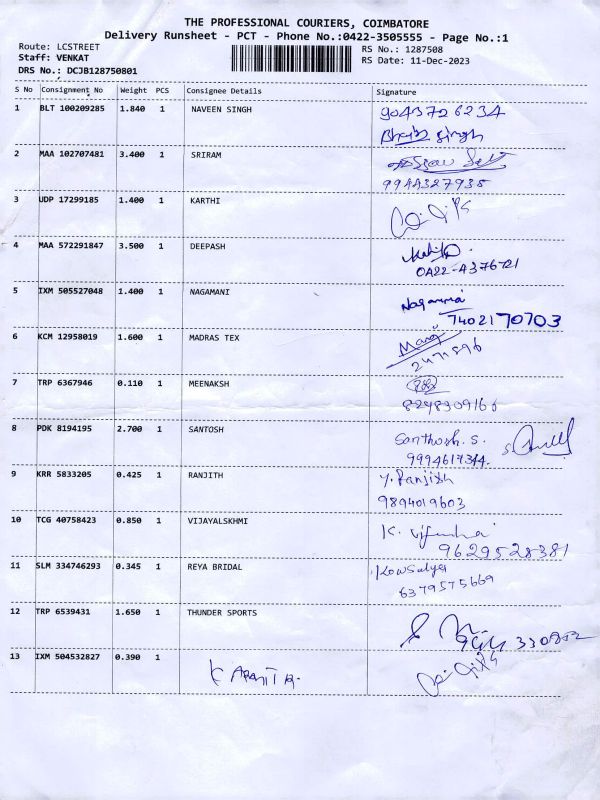 THE PROFESSIONAL COURIERS, COIMBATORE
Delivery Runsheet - PCT - Phone No.:0422-3505555 - Page No.:1
Route: LCSTREET
Staff: VENKAT
DRS No.: DCJB128750801
RS No.: 1287508
RS Date: 11-Dec-2023
S No Consignment No Weight PCS Consignee Details Signature
1 BLT 100209285 1.840 1 NAVEEN SINGH 9043726234
Singh
2 MAA 102707481 3.400 1 SRIRAM
9944327935
3 UDP 17299185 1.400 1 KARTHI
4 MAA 572291847 3.500 1 DEEPASH
0422-4376721
5 IXM 505527048 1.400 1 NAGAMANI
7402170703
6 KCM 12958019 1.600 1 MADRAS TEX
2471896
7 TRP 6367946 0.110 1 MEENAKSH
8248909166
8 PDK 8194195 2.700 1 SANTOSH Santhosh. S.
9994617344.
9 KRR 5833205 0.425 1 RANJITH Y. Ranjith
9894019603
10 TCG 40758423 0.850 1 VIJAYALSKHMI K.
9629528381
11 SLM 334746293 0.345 1 REYA BRIDAL Kowsalya
6379575669
12 TRP 6539431 1.650 1 THUNDER SPORTS
13 IXM 504532827 0.390 1